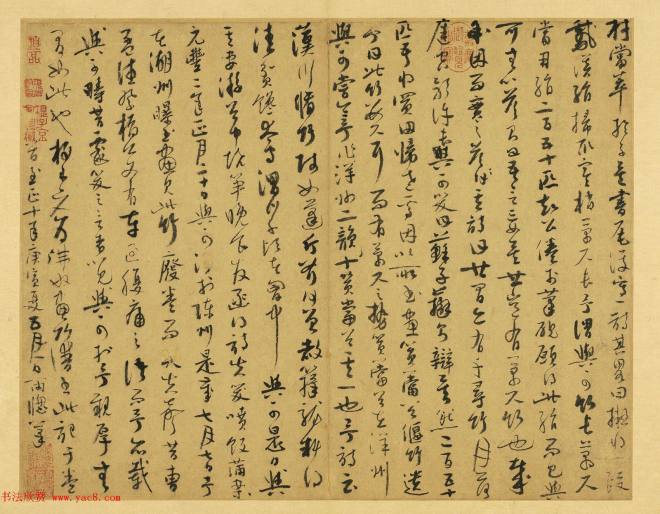 材當萃於子矣書尾復寫一詩其略曰擬將一段
鵝溪絹掃取寒梢萬尺長予謂與可竹長萬尺
當用絹二百五十匹知公倦於筆硯願得此絹而已與
可無以答則曰吾言妄矣世豈有萬尺竹也哉
余因而實之答其詩曰世間亦有千尋竹月落
庭空影許長與可笑曰蘇子辯則辯矣然二百五十
匹吾將買田歸老焉因以所畫篔簹谷偃竹遺
予曰此竹數尺耳而有萬尺之勢篔簹谷在洋州
與可嘗令予作洋州二韻十篔簹谷其一也予詩云
漢川脩竹賤如蓬斤斧何曾赦籜龍料得
清貧饞太守渭川千畝在胸中與可是日與
其妻游谷中燒筍晚食發函得詩失笑噴飯滿案
元豐二年正月二十日與可沒於陳州是歲七月七日予
在湖州曝書畫見此竹廢卷而哭失聲昔曹
孟德祭橋公文有車過腹痛之語而予亦載
與可疇昔戲笑之言者以見與可於予親厚無
間如此也畫竹譜至此記于卷
首至正十年庚寅夏五月一日
书法欣赏 www.yac8.com